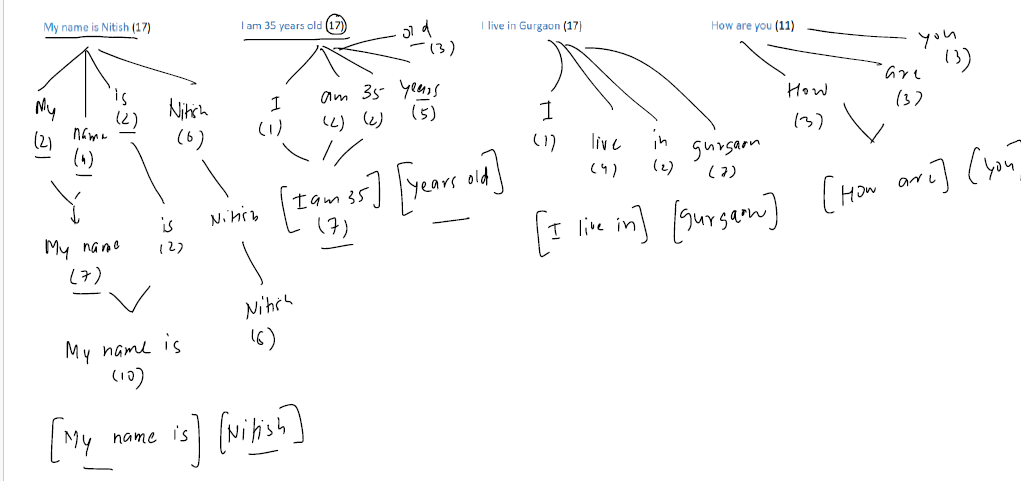 My name is Nitish (17)
My
(2)
name
(4)
is
(2)
Nitish
(6)
My name
(7)
is
(2)
Nitish
Nitish
(6)
My name is
(10)
[My name is] [Nitish]
I am 35 years old (17)
I
(1)
am
(2)
35
(2)
years
(5)
old
(3)
[I am 35] [years old]
(7)
I live in Gurgaon (17)
I
(1)
live
(4)
in
(2)
gurgaon
(7)
[I live in] [gurgaon]
How are you (11)
How
(3)
are
(3)
you
(3)
[How are] [you